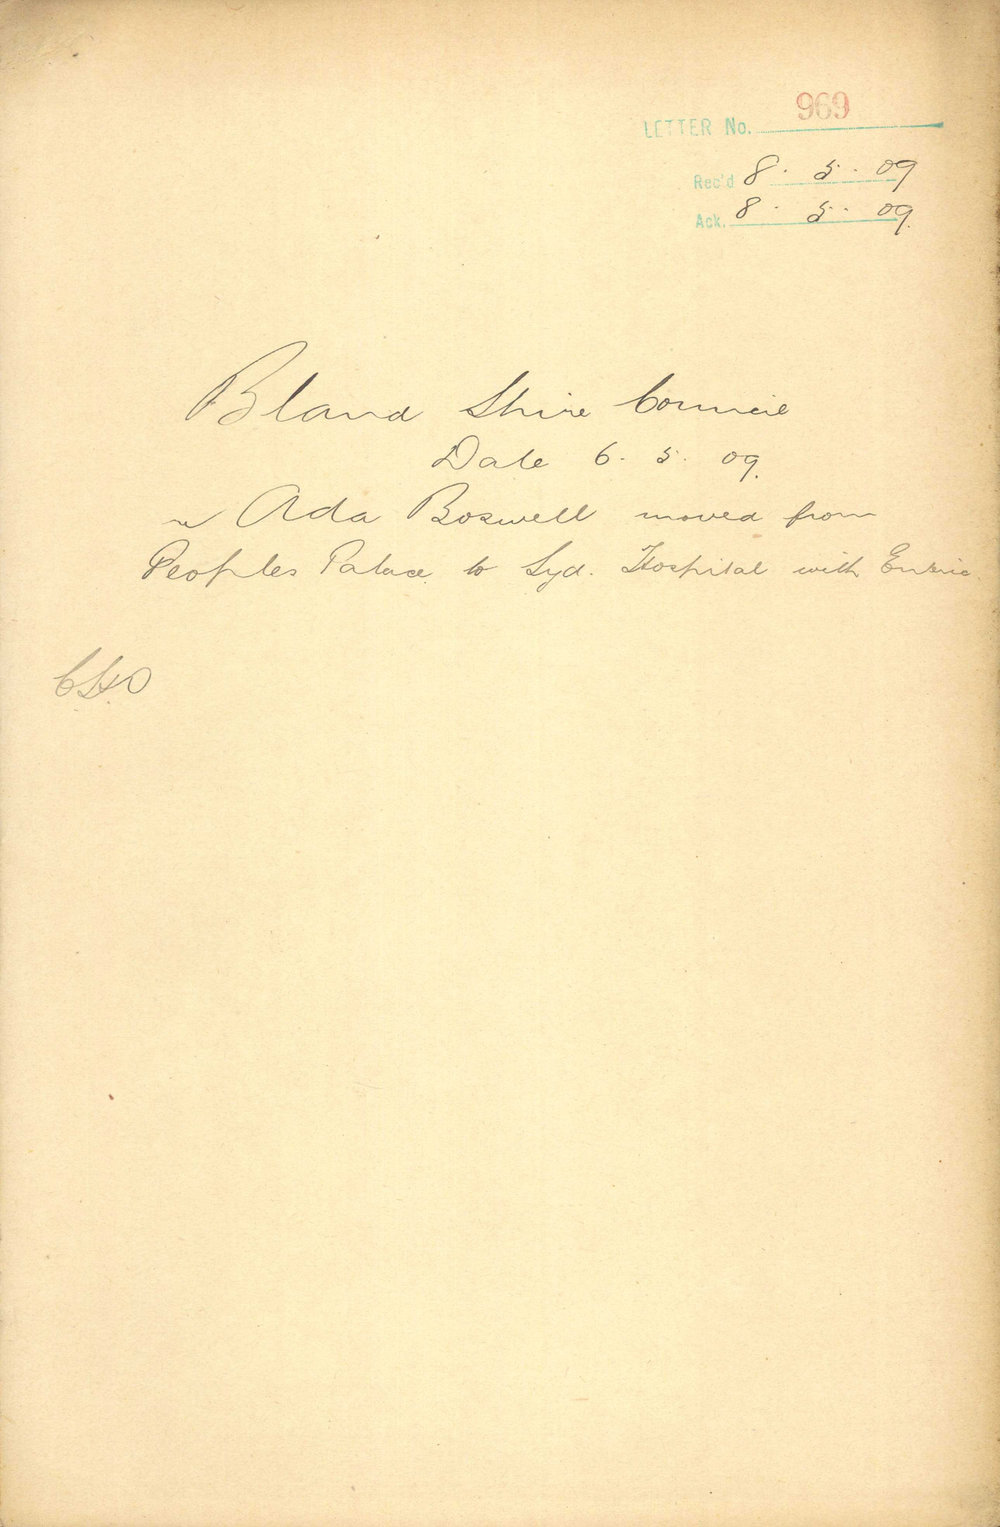 LETTER No. 969
Rec'd 8. 5. 09
Ack. 8. 5. 09.
Bland Shire Council
Date 6. 5. 09.
re Ada Boswell moved from
Peoples Palace to Syd. Hospital with Enteric
CHO